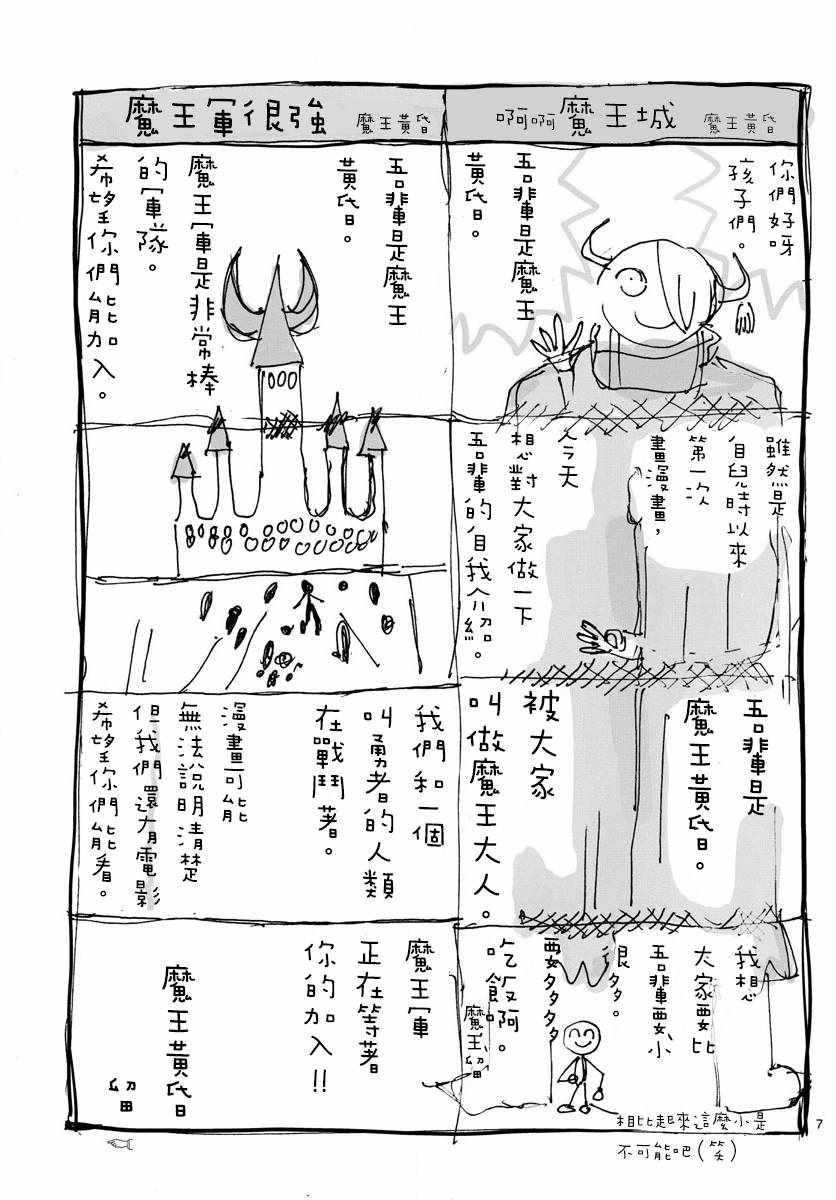 啊啊魔王城 魔王黃昏
你們好呀
孩子們。
吾輩是魔王
黃昏。
雖然是
自兒時以來
第一次
畫漫畫，
今天
想對大家做一下
吾輩的自我介紹。
吾輩是
魔王黃昏。
被大家
叫做魔王大人。
我想
大家要比
吾輩要小
很多。
要多多多多
吃飯啊。
魔王、留
相比起來這麼小是
不可能吧(笑)
魔王軍很強 魔王黃昏
吾輩是魔王
黃昏。
魔王軍是非常棒
的軍隊。
希望你們能加入。
我們和一個
叫勇者的人類
在戰鬥著。
漫畫可能
無法說明清楚
但我們還有電影
希望你們能看。
魔王軍
正在等著
你的加入!!
魔王黃昏
留
7